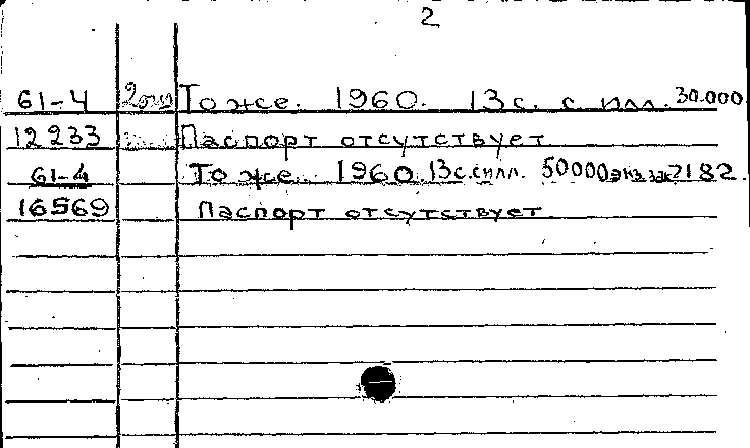 2
61-4 То же. 1960. 13 с. с илл. 30.000
12233 Паспорт отсутствует
61-4 То же. 1960. 13 с. с илл. 50000 экз. зак 2182.
16569 Паспорт отсутствует